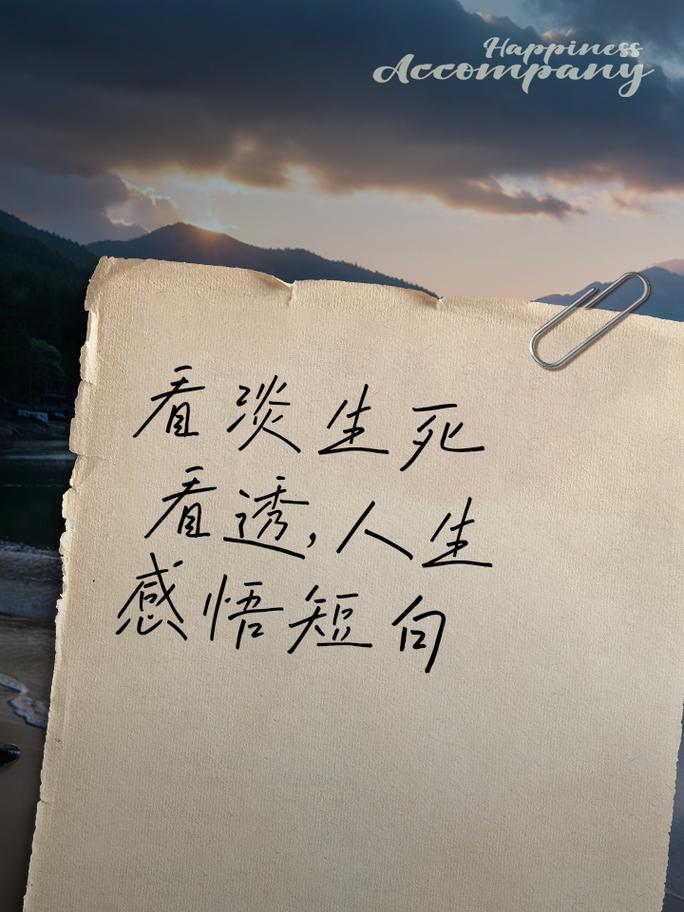 Happiness
Accompany
看淡生死
看透,人生
感悟短句